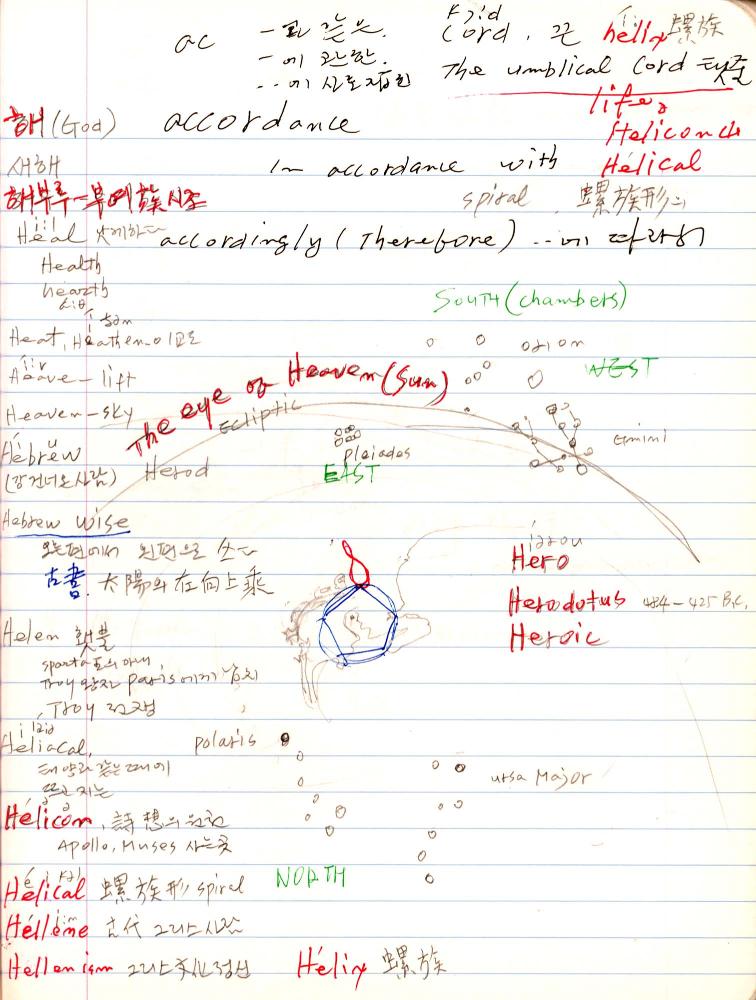 ac -와 같은. cord, 끈 helix 螺旋
-에 관한.
..에 The umblical cord 탯줄
life,
해 (God) accordance
새해 In accordance with Hélical
해부루-부여族시조 spiral 螺旋形의
Heal 낫게하다 accordingly (Therefore) ...에 따라서
Health
hearth
South (chambers)
Heat, Heathen-이교도 orion
Heave - lift WEST
The eye of Heaven (Sun)
Heaven-sky Ecliptic
Hebrew pleiades Gmini
(강건너온사람) Herod EAST
Hebrew wise
오른편에서 왼편으로 쓰는 Hero
古書. 太陽의 在向上乘
Herodotus 484-425 B.C.
Helen 횃불 Heroic
sparta王의 아내
Troy 왕자 paris에게 납치
Troy 전쟁
Heliacal, polaris
태양과 같은 때에 ursa Major
뜨고 지는
Hélicon, 詩想의 원천
Apollo, Muses 사는곳
Hélical 螺旋形 spiral NORTH
Hellene 古代 그리스사람
Hellenism 그리스文化정신 Hélix 螺旋